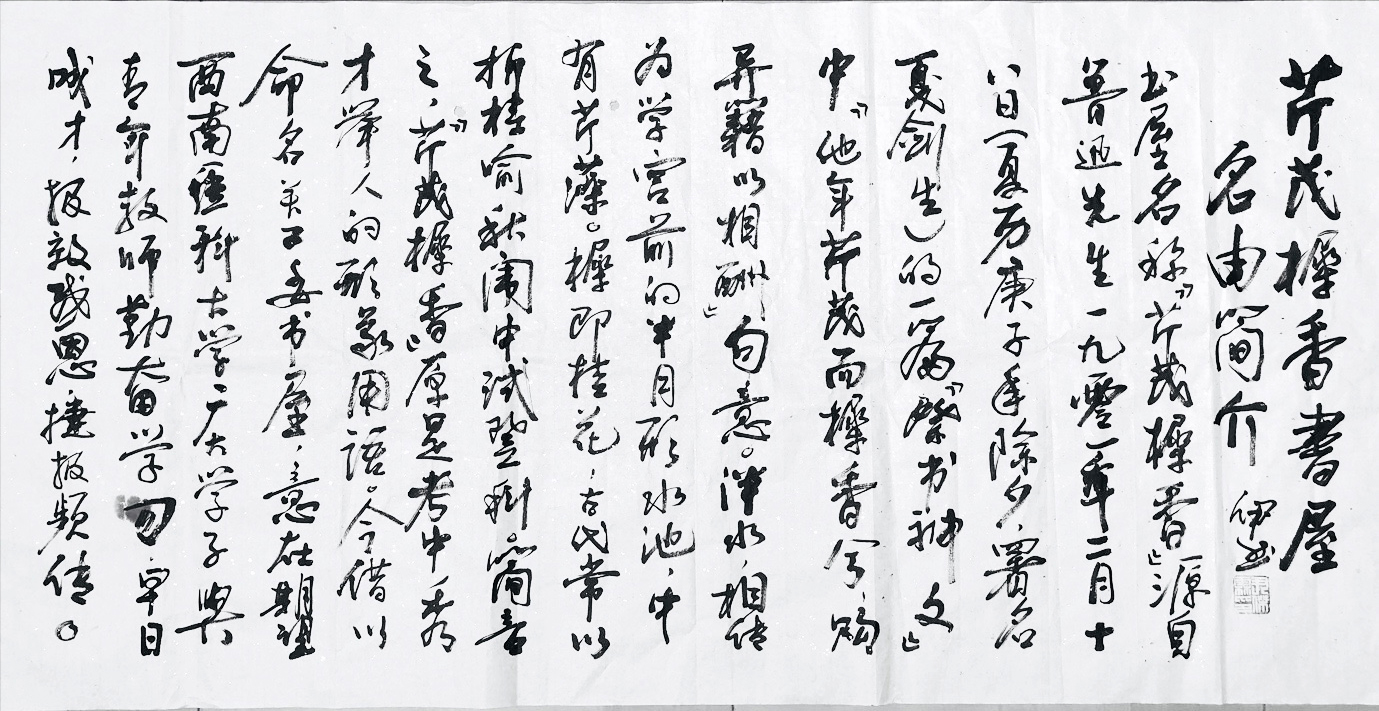 芹茂樨香书屋
名由简介
书屋名称“芹茂樨香”源自
鲁迅先生一九零一年二月十
八日(夏历庚子年除夕,署名
戛剑生)的一篇“祭书神文”
中“他年芹茂而樨香兮,购
异籍以相酬”句意。泮水,相传
为学宫前的半月形水池,中
有芹藻。樨即桂花,古代常以
折桂喻秋闱中试登科。简言
之,“芹茂樨香”原是考中秀
才举人的形象用语。今借以
命名关工委书屋,意在期望
西南医科大学广大学子与
青年教师勤奋学习,早日
成才,报效残恩,捷报频传。